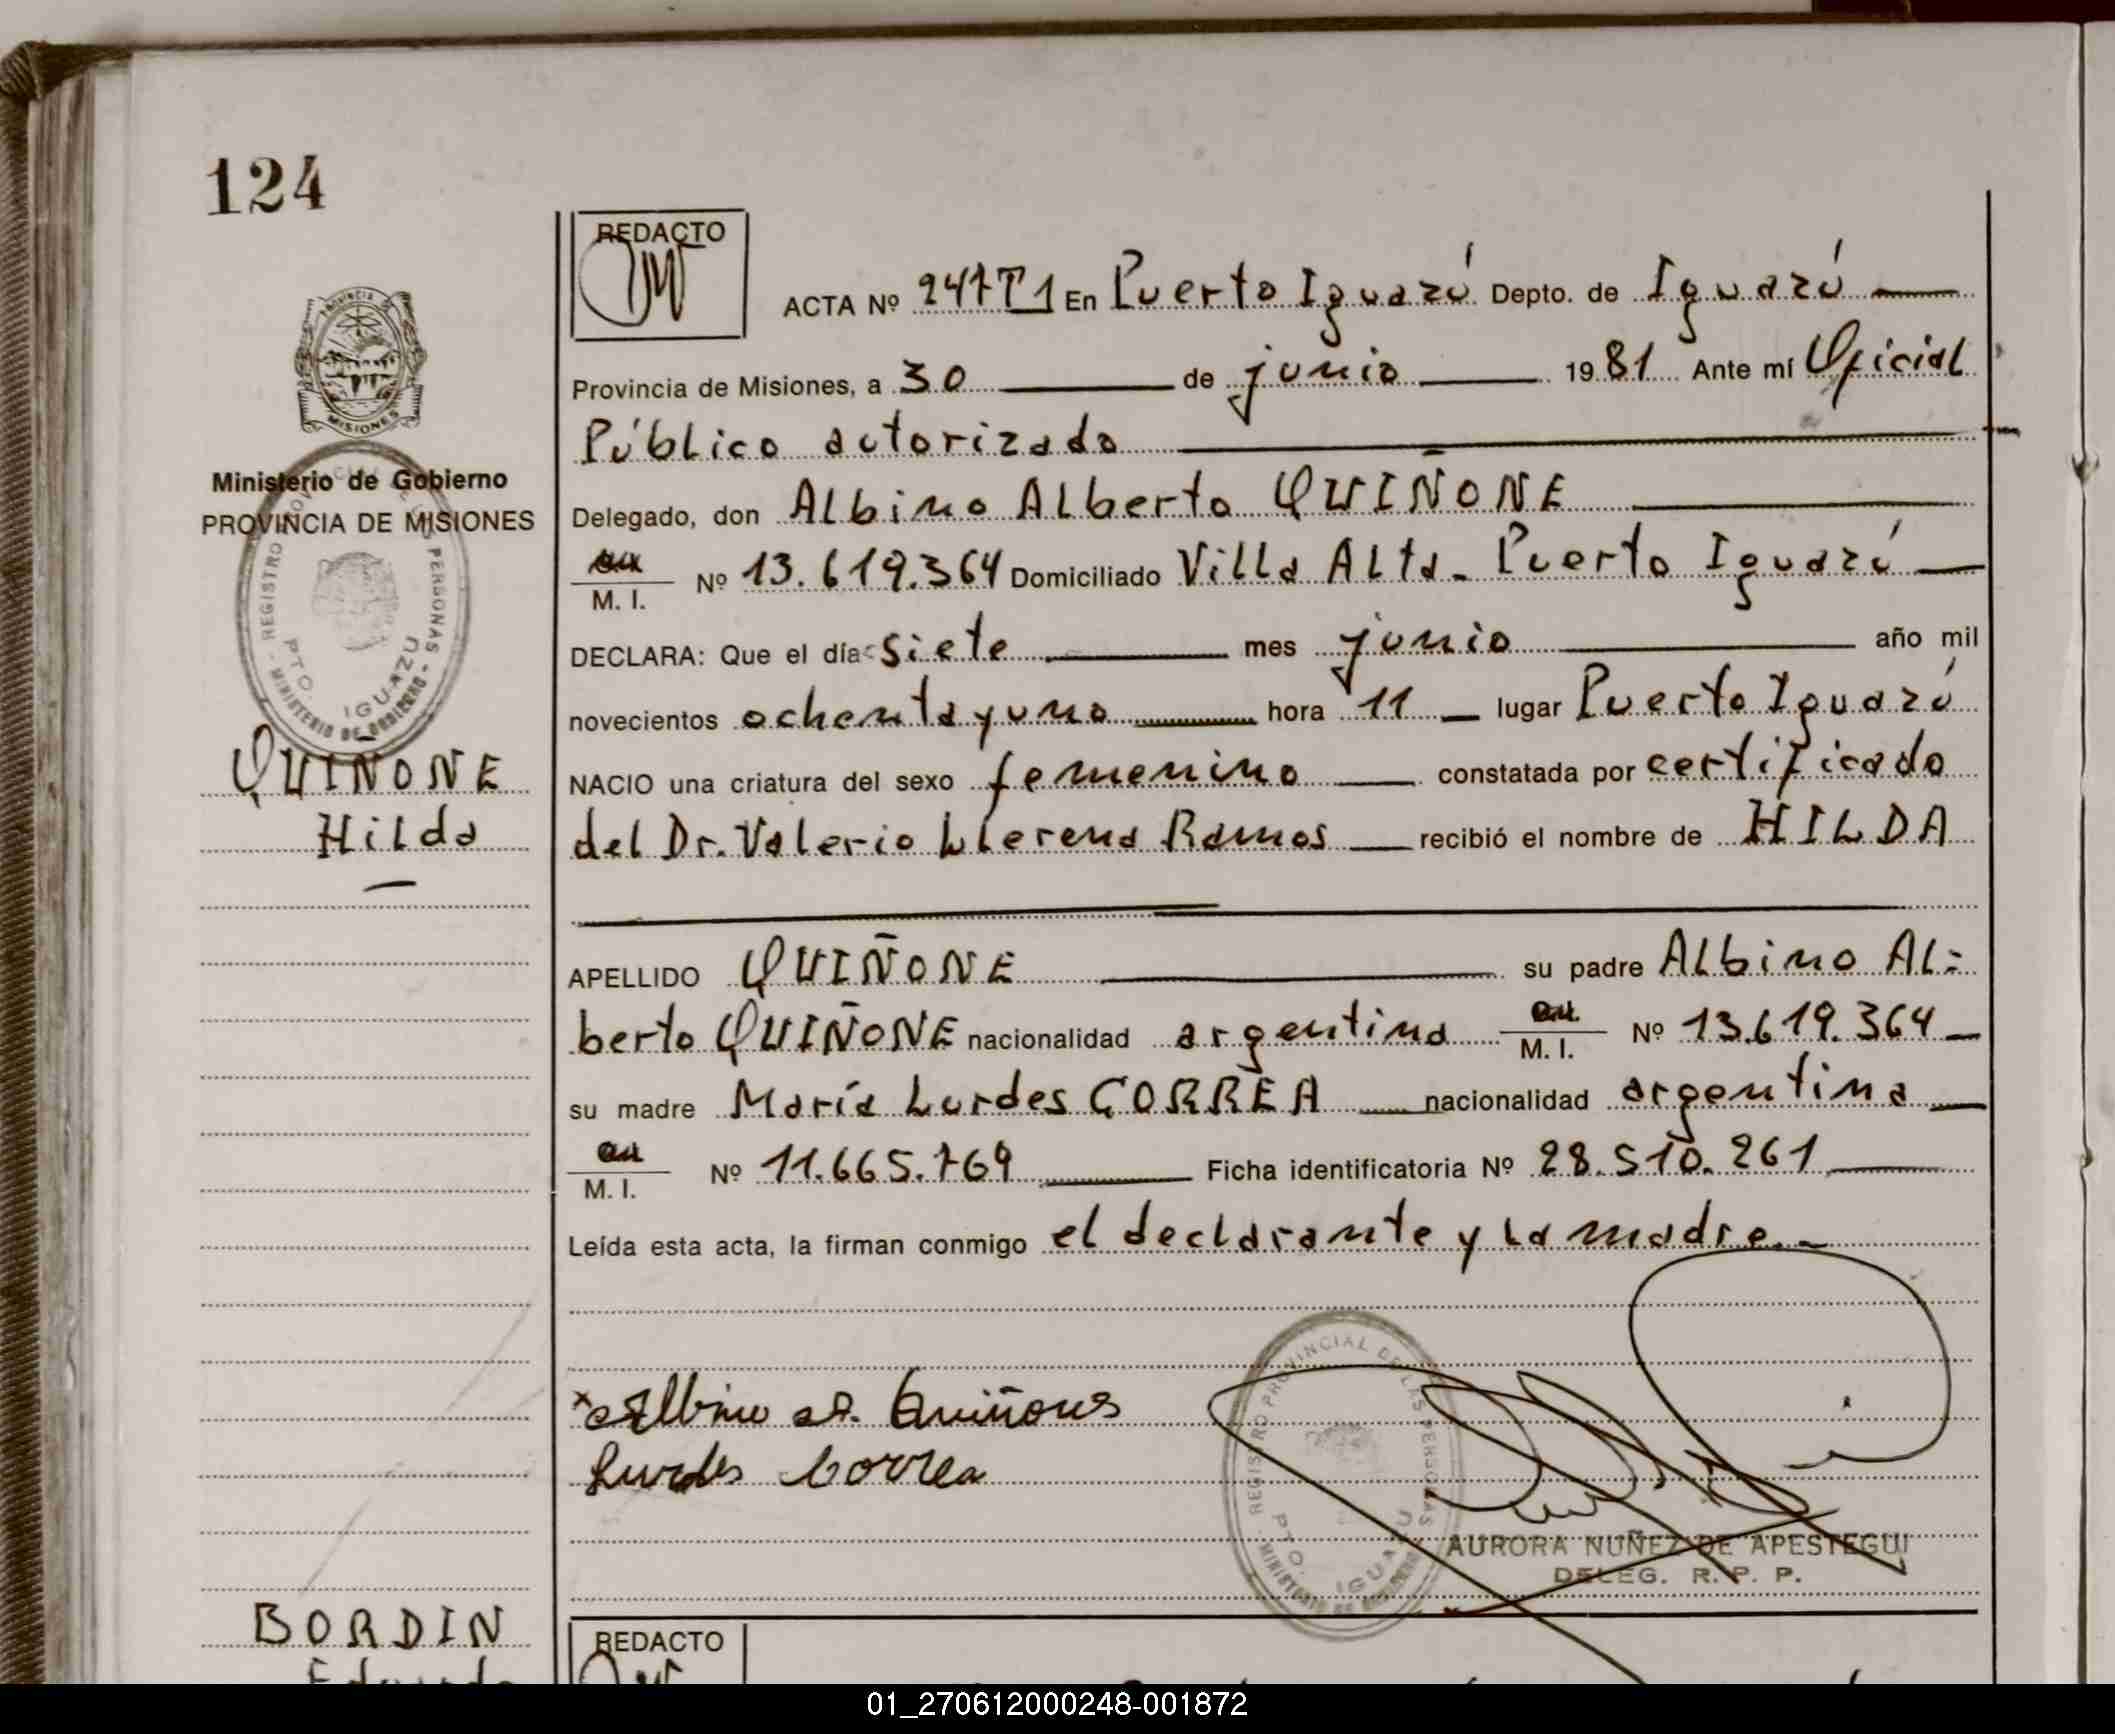 124
PROVINCIA DE
MISIONES
Ministerio de Gobierno
PROVINCIA DE MISIONES
REGISTRO PROVINCIAL DE LAS PERSONAS
PTO. IGUAZU
MINISTERIO DE GOBIERNO
QUIÑONE
Hilda
REDACTO
ACTA Nº 247T1 En Puerto Iguazú Depto. de Iguazú
Provincia de Misiones, a 30 de junio 1981 Ante mí Oficial
Público autorizado
Delegado, don Albino Alberto QUIÑONE
M. I. Nº 13.619.364 Domiciliado Villa Alta - Puerto Iguazú
DECLARA: Que el día siete mes junio año mil
novecientos ochenta y uno hora 11 lugar Puerto Iguazú
NACIO una criatura del sexo femenino constatada por certificado
del Dr. Valerio Llerena Ramos recibió el nombre de HILDA
APELLIDO QUIÑONE su padre Albino Al=
berto QUIÑONE nacionalidad argentina M. I. Nº 13.619.364
su madre María Lurdes CORREA nacionalidad argentina
M. I. Nº 11.665.769 Ficha identificatoria Nº 28.510.261
Leída esta acta, la firman conmigo el declarante y la madre.-
Albino A. Quiñones
Lurdes Correa
REGISTRO PROVINCIAL DE LAS PERSONAS
PTO. IGUAZU
MINISTERIO DE GOBIERNO
AURORA NUÑEZ DE APESTEGUI
DELEG. R. P. P.
BORDIN
Eduardo
REDACTO
01_270612000248-001872